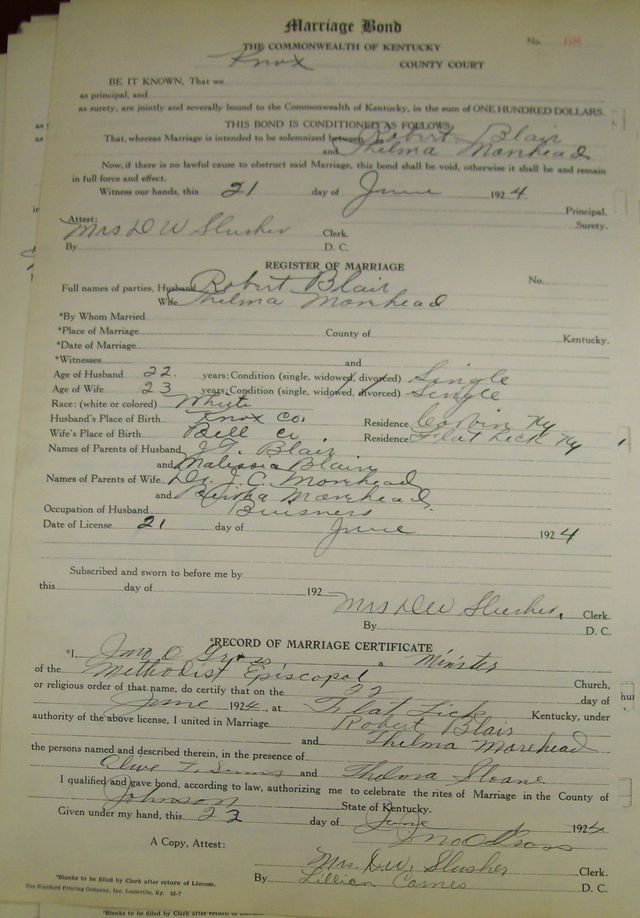 Marriage Bond
No. 68
THE COMMONWEALTH OF KENTUCKY
Knox COUNTY COURT
BE IT KNOWN, That we
as principal, and
as surety, are jointly and severally bound to the Commonwealth of Kentucky, in the sum of ONE HUNDRED DOLLARS.
THIS BOND IS CONDITIONED AS FOLLOWS:
That, whereas Marriage is intended to be solemnized between Robert Blair
and Thelma Morehead
Now, if there is no lawful cause to obstruct said Marriage, this bond shall be void, otherwise it shall be and remain
in full force and effect.
Witness our hands, this 21 day of June 1924
Principal.
Surety.
Attest:
Mrs D W Slusher Clerk.
By D. C.
REGISTER OF MARRIAGE
No.
Full names of parties, Husband Robert Blair
Wife Thelma Morehead
*By Whom Married
*Place of Marriage County of Kentucky.
*Date of Marriage
*Witnesses and
Age of Husband 22 years; Condition (single, widowed, divorced) Single
Age of Wife 23 years; Condition (single, widowed, divorced) Single
Race: (white or colored) White
Husband's Place of Birth Knox Co. Residence Corbin Ky
Wife's Place of Birth Bell Co. Residence Flat Lick Ky
Names of Parents of Husband Blair
and Malissia Blair
Names of Parents of Wife Dr. J. C. Morehead
and Morehead
Occupation of Husband Buisness
Date of License 21 day of June 1924
Subscribed and sworn to before me by
this day of 192
Mrs D W Slusher, Clerk.
By D. C.
*RECORD OF MARRIAGE CERTIFICATE
*I, Jno. O. Gross a Minister
of the Methodist Episcopal Church,
or religious order of that name, do certify that on the 22 day of
June 1924, at Flat Lick Kentucky, under
authority of the above license, I united in Marriage Robert Blair
and Thelma Morehead
the persons named and described therein, in the presence of
Olive T. and Thelova Sloane
I qualified and gave bond, according to law, authorizing me to celebrate the rites of Marriage in the County of
Johnson State of Kentucky.
Given under my hand, this 22 day of June 1924
Jno O Gross
A Copy, Attest:
Mrs. D. W. Slusher Clerk.
By Lillian Carnes D. C.
*Blanks to be filled by Clerk after return of License.
The Standard Printing Company, Inc. Louisville, Ky. M-7
*Blanks to be filled by Clerk after return of